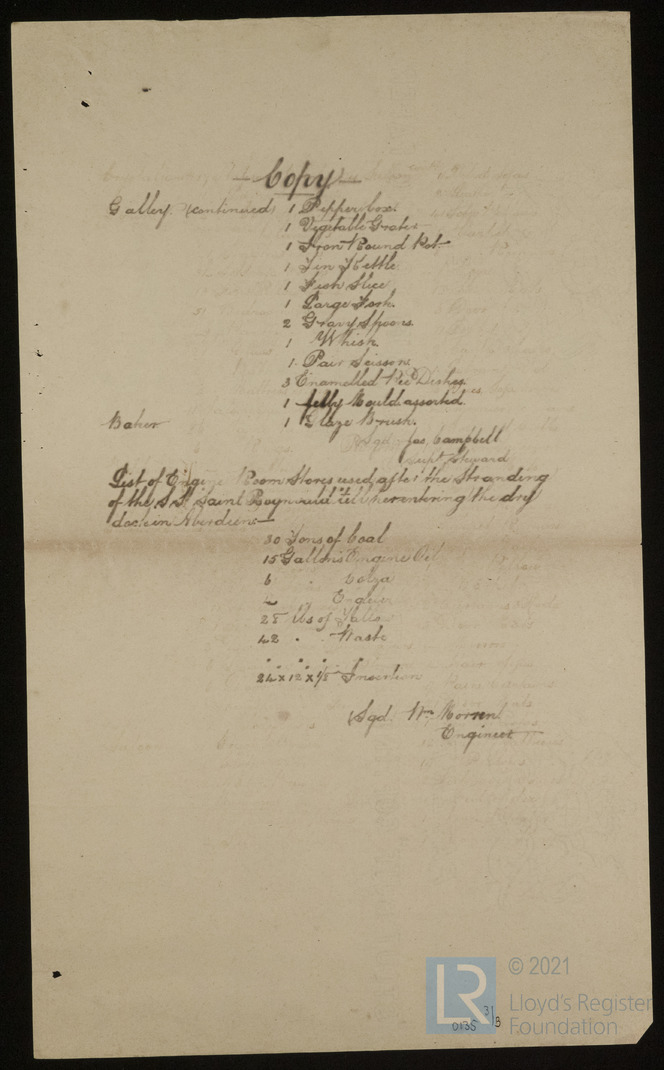 Copy
Galley (continued) 1 Pepper box.
1 Vegetable Grater
1 Iron Round Pot
1 Tin Kettle
1 Fish Slice
1 Large Fork.
2 Gravy Spoons
1 Whisk
1 Pair Scissors
3 Enamelled Pie Dishes
1 Jelly Mould assorted.
Baker 1 Glaze Brush.
Sgd. Jas. Campbell
Supt. Steward
List of Engine Room Stores used after the Stranding
of the S.S. Saint Rognvald till her entering the dry
dock in Aberdeen
30 Tons of Coal
15 Gallons Engine Oil
6 " Colza
2 "
28 lbs of Tallow
42 " Waste
24 x 12 x 1/8 Insertion
(Sgd. Wm.
Engineer
© 2021
LR
Lloyd's Register
Foundation
0135 3/B